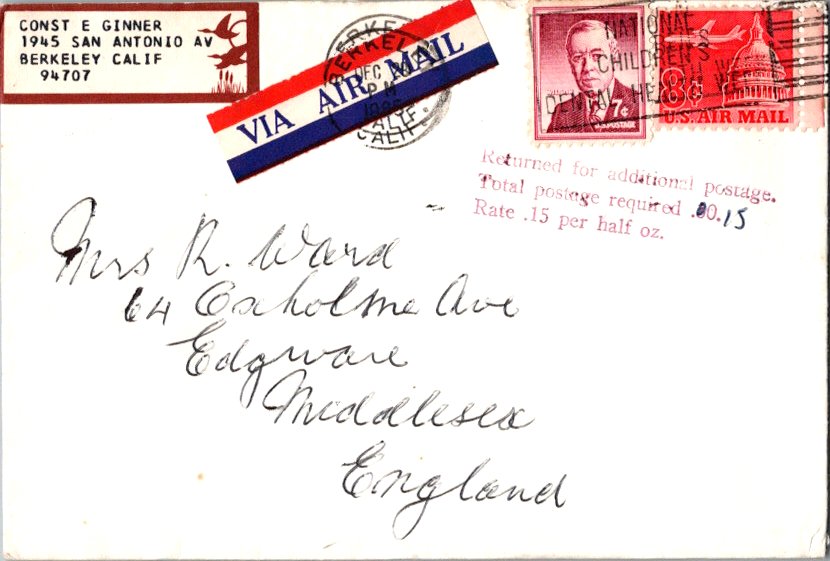 CONST E GINNER
1945 SAN ANTONIO AV
BERKELEY CALIF
94707
VIA AIR MAIL
BERKELEY
DEC
PM
CALIF.
NATIONAL
CHILDREN'S
DENTAL HEALTH WEEK
7¢
U.S. POSTAGE
8¢
U.S. AIR MAIL
Returned for additional postage.
Total postage required .00.15
Rate .15 per half oz.
Mrs R. Ward
64 Oxholme Ave
Edgware
Middlesex
England